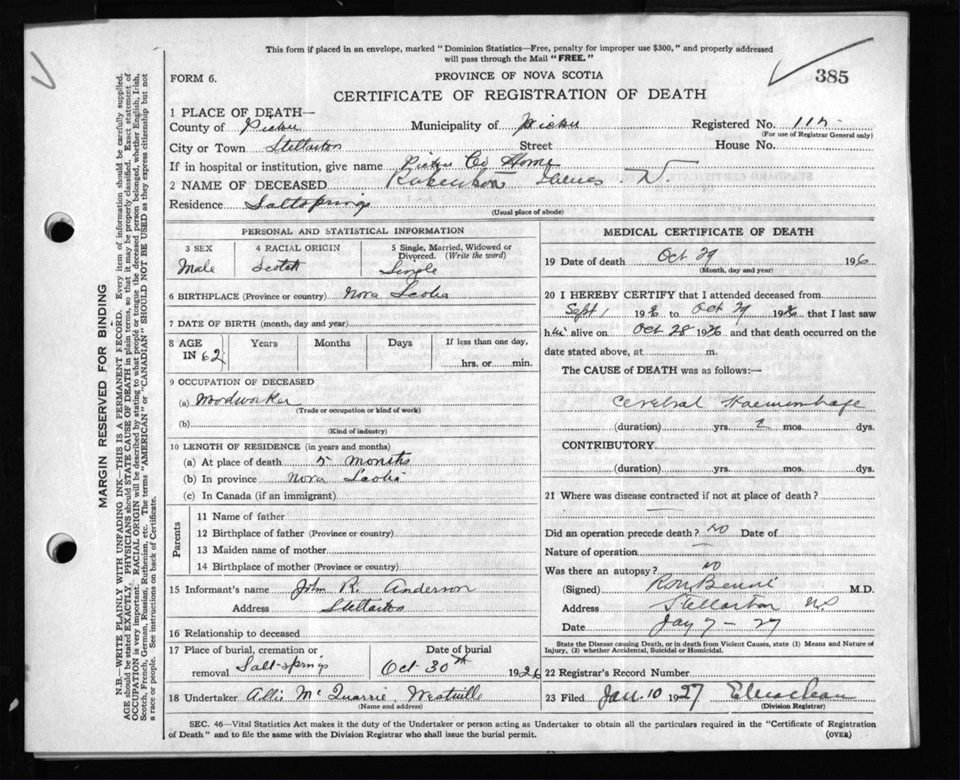 This form if placed in an envelope, marked "Dominion Statistics—Free, penalty for improper use $300," and properly addressed
will pass through the Mail "FREE."
FORM 6.
PROVINCE OF NOVA SCOTIA
385
CERTIFICATE OF REGISTRATION OF DEATH
1 PLACE OF DEATH—
County of Pictou Municipality of Pictou Registered No.
(For use of Registrar General only)
City or Town Stellarton Street House No.
If in hospital or institution, give name Pictou Co Home
2 NAME OF DECEASED Robertson James
Residence Saltsprings
(Usual place of abode)
PERSONAL AND STATISTICAL INFORMATION
3 SEX 4 RACIAL ORIGIN 5 Single, Married, Widowed or Divorced. (Write the word)
Male Scotch Single
6 BIRTHPLACE (Province or country) Nova Scotia
7 DATE OF BIRTH (month, day and year)
8 AGE IN 62 Years Months Days If less than one day,
hrs. or min.
9 OCCUPATION OF DECEASED
(a) Woodworker
(Trade or occupation or kind of work)
(b)
(Kind of industry)
10 LENGTH OF RESIDENCE (in years and months)
(a) At place of death 5 months
(b) In province Nova Scotia
(c) In Canada (if an immigrant)
Parents
11 Name of father
12 Birthplace of father (Province or country)
13 Maiden name of mother
14 Birthplace of mother (Province or country)
15 Informant's name John R. Anderson
Address Stellarton
16 Relationship to deceased
17 Place of burial, cremation or removal Salt-springs
Date of burial
Oct 30th 1926
18 Undertaker Allie McQuarrie, Westville
(Name and address)
MEDICAL CERTIFICATE OF DEATH
19 Date of death Oct 29 1926
(Month, day and year)
20 I HEREBY CERTIFY that I attended deceased from
Sept 1 1926 to Oct 29 1926 that I last saw
him alive on Oct 28 1926 and that death occurred on the
date stated above, at m.
The CAUSE of DEATH was as follows:—
Cerebral Haemorrhage
(duration) yrs. 2 mos. dys.
CONTRIBUTORY
(duration) yrs. mos. dys.
21 Where was disease contracted if not at place of death?
—
Did an operation precede death? NO Date of
Nature of operation —
Was there an autopsy? NO
(Signed) M.D.
Address Stellarton NS
Date Jay 7 - 27
State the Disease causing Death, or in death from Violent Causes, state (1) Means and Nature of
Injury, (2) whether Accidental, Suicidal or Homicidal.
22 Registrar's Record Number
23 Filed Jan. 10 1927
(Division Registrar)
SEC. 46—Vital Statistics Act makes it the duty of the Undertaker or person acting as Undertaker to obtain all the particulars required in the "Certificate of Registration
of Death" and to file the same with the Division Registrar who shall issue the burial permit.
(OVER)
MARGIN RESERVED FOR BINDING
N.B.—WRITE PLAINLY WITH UNFADING INK—THIS IS A PERMANENT RECORD. Every item of information should be carefully supplied.
AGE should be stated EXACTLY, PHYSICIANS should STATE CAUSE OF DEATH in plain terms, so that it may be properly classified. Exact statement of
OCCUPATION is very important. RACIAL ORIGIN will be described by stating to what people or tongue the deceased person belonged, whether English, Irish,
Scotch, French, German, Russian, Ruthenian, etc. The terms "AMERICAN" or "CANADIAN" SHOULD NOT BE USED as they express citizenship but not
a race or people. See instructions on back of Certificate.